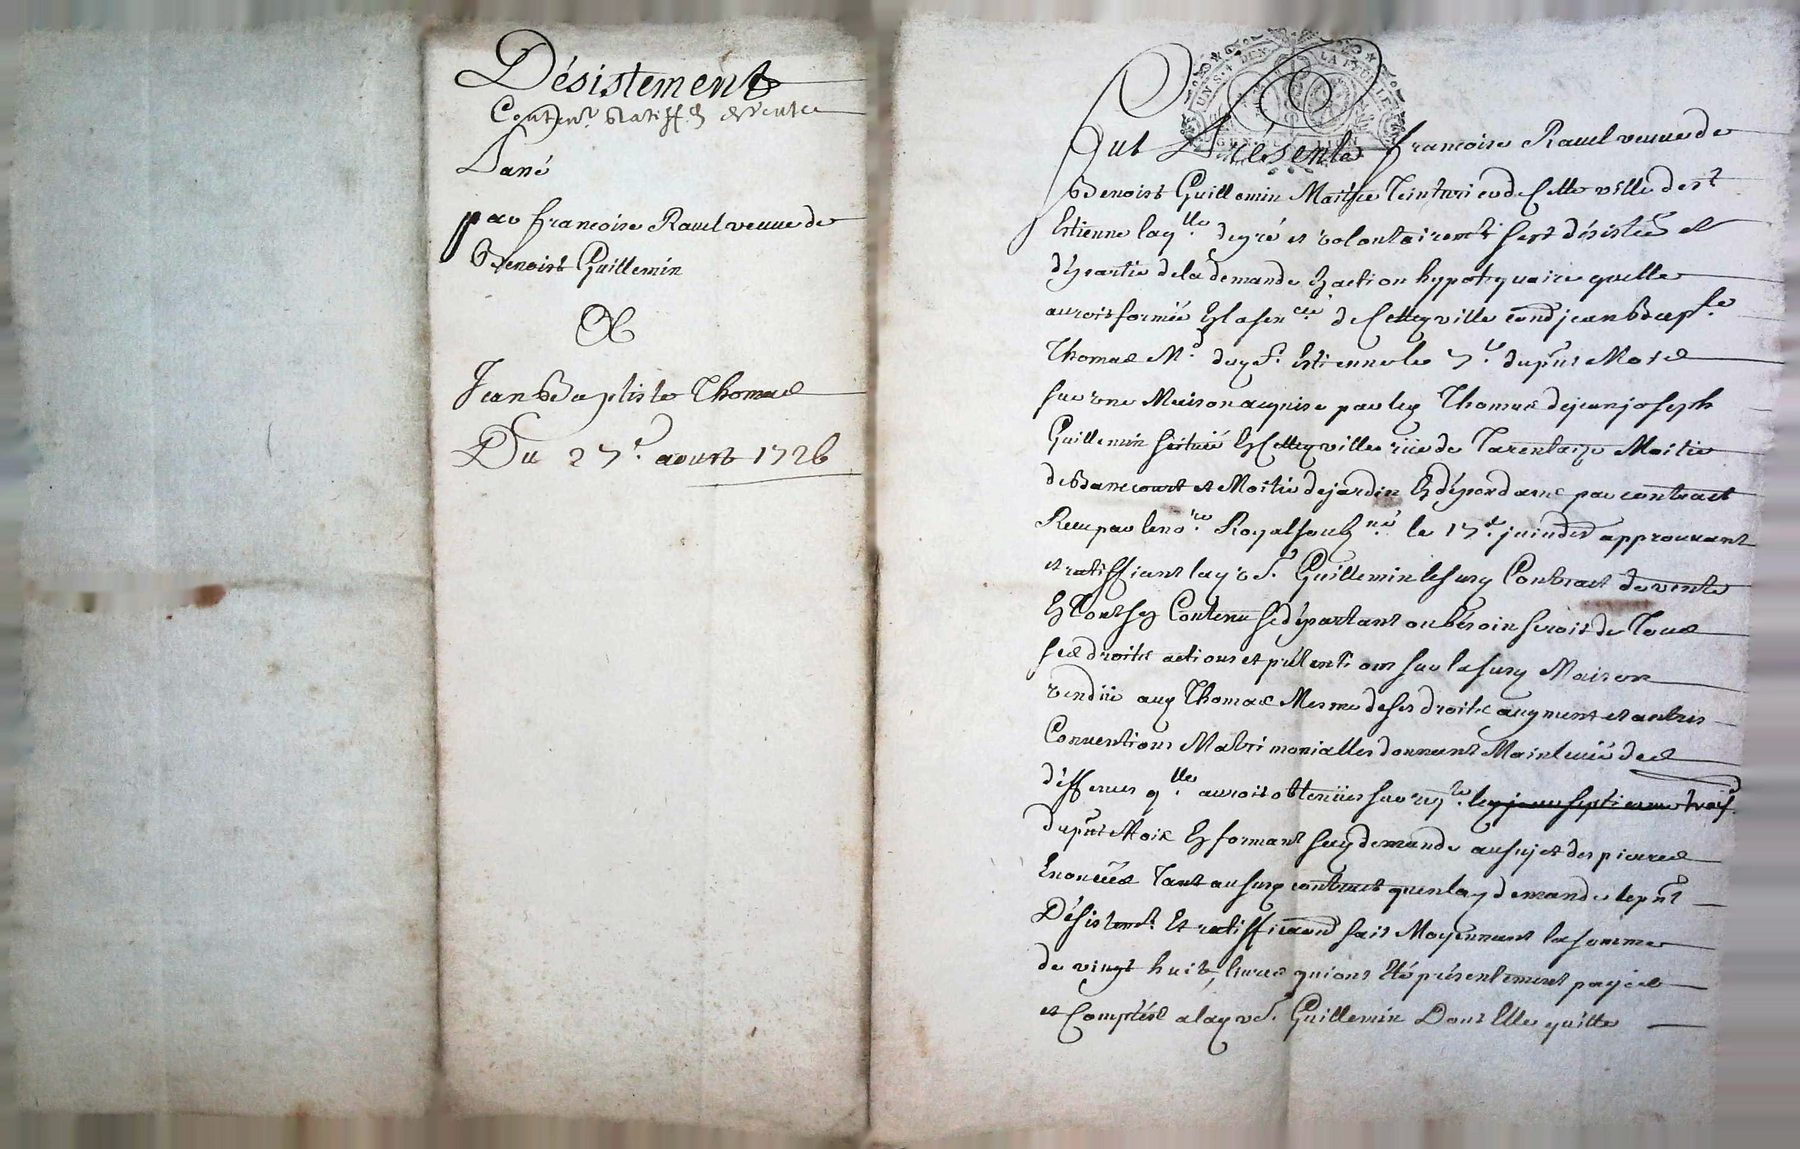 Désistement
Conten.t Ratiff.on de vente
Passé
par francoise Ravel veuve de
Benoist Guillemin
A
Jean Baptiste Thomas
Du 27.e aoust 1726
fut Présente francoise Ravel veuve de
Benoist Guillemin Maitre Teinturier de Cette ville de st
Estienne laq.lle de gré et volontairem.t sest désistée et
départie de la demande en action hypotequaire quelle
auroit formée en la sen.cée de Cette ville Jean Bapt.te
Thomas M.d St. Estienne le 7.e du pnt Mois
sur une Maison acquise par led Thomas de jean joseph
Guillemin scituée en Cette ville riie de Tarentaize Moitie
de Basse court et Moitié de jardin en dépendant par contract
Receu par le no.re Royal soub.né le 17.e juin der approuvant
et ratiffiant lad ve. Guillemin le susd Contract de vente
en tout son Contenu se départant ou bésoin seroit de Tous
ses droits actions et prétentions sur la susd Maison
vendüe aud Thomas Mesme de ses droits augment et autres
Conventions Matrimonialles donnant Mainlevée des
déffenses q.lle auroit obtenües sur req.te
du pnt Mois en formant sa demande au sujet des pieces
Enoncées Tant au susd contract quen lad demande le pnt
Désistem.t Et ratiffica.on fait Moyennant la somme
de vingt huit livres qui ont été présentement payées
et Comptées a lad ve. Guillemin Dont Elle quitte